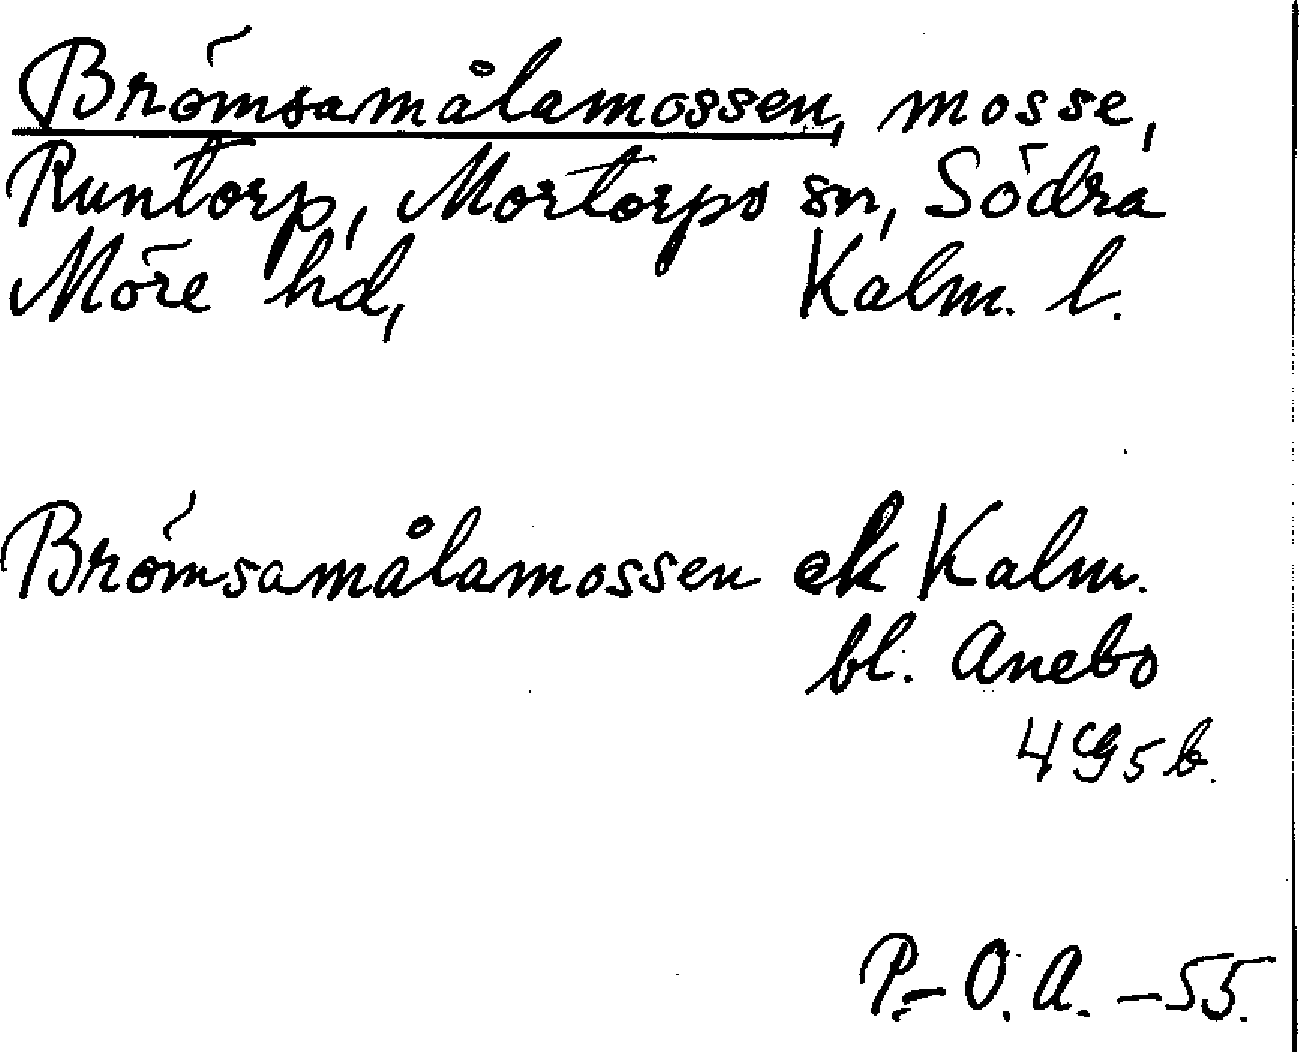 Brömsamålamossen, mosse,
Runtorp, Mortorps sn, Södra
Möre hd, Kalm. l.
Brömsamålamossen ek Kalm.
bl. Anebo
4G5b.
P.-O. A. -55.